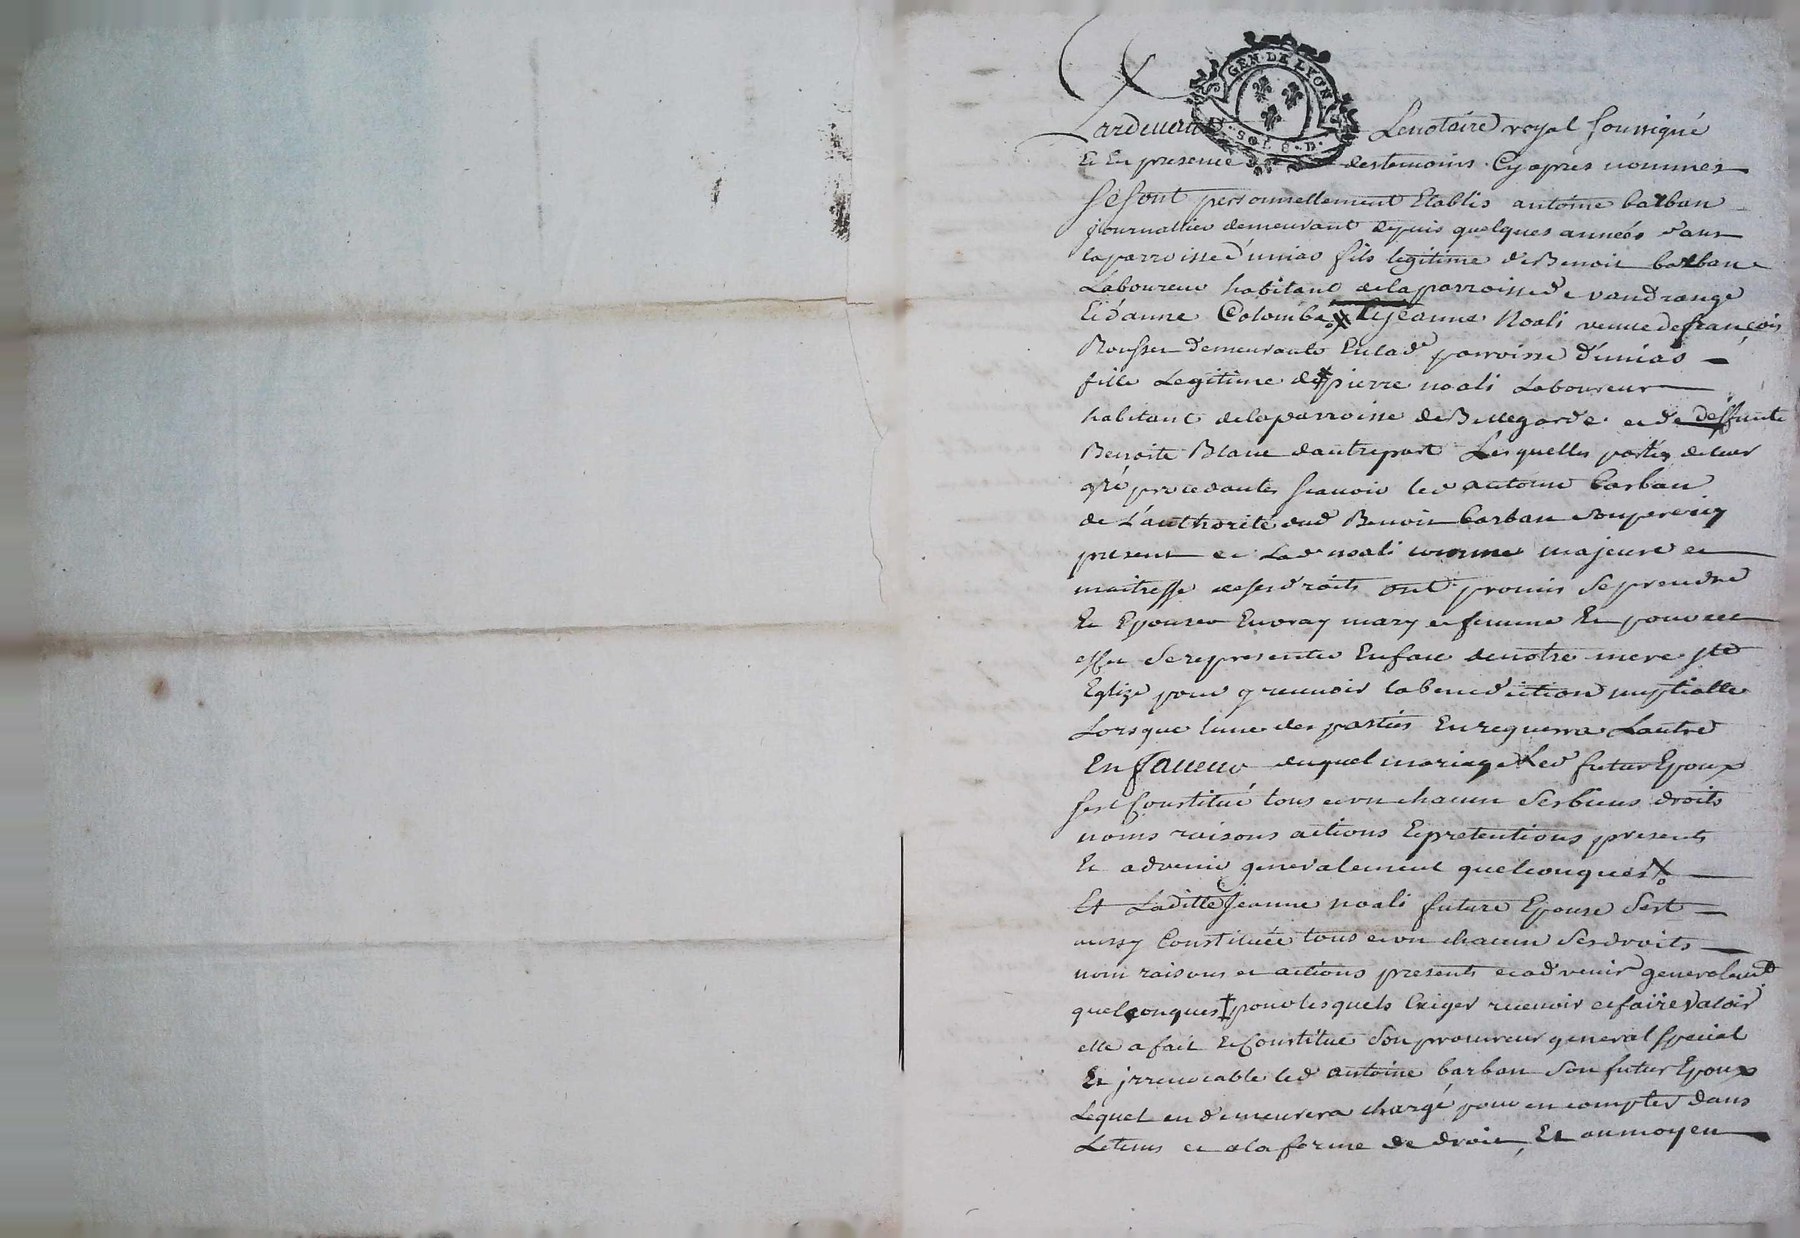 GEN. DE LYON
SOL. 8. D.
Pardevant Le notaire royal soussigné
Et En presence des temoins Cy apres nommés
se sont personnellement Etablis antoine barban
journallier demeurant depuis quelques années dans
la parroisse d'unias fils legitime de Benoit barban
Laboureur habitant de la parroisse de vandrange
Et d'anne Colombe Et jeanne Noali veuve de françois
Rousset demeurante En lad parroisse d'unias
fille Legitime de pierre noali Laboureur
habitant de la parroisse de Bellegarde et de deffunte
Benoite Blanc d'autre part Lesquelles parties de leur
gré procedantes scavoir led antoine barban
de L'authorité dud Benoit barban son pere icy
present et La d noali comme majeure et
maitresse de ses droits ont promis se prendre
Et Epouser En vray mary et femme Et pour cet
effet se representer En face de notre mere ste
Eglize pour y recevoir la benediction nuptialle
Lorsque l'une des parties En requerra L'autre
En faveur duquel mariage Led futur Epoux
s'est Constitué tous et un chacun ses biens droits
noms raisons actions Et pretentions presents
Et advenir generalement quelconques
Et Laditte Jeanne noali future Epouse s'est
aussy Constituée tous et un chacun ses droits
nom raisons et actions presents et advenir generalemt
quelconques pour lesquels Exiger recevoir et faire valoir
elle a fait Et Constitué son procureur general special
Et jrrevocable led antoine barban son futur Epoux
Lequel en demeurera chargé pour en compter dans
Le tems et a la forme de droit, Et au moyen